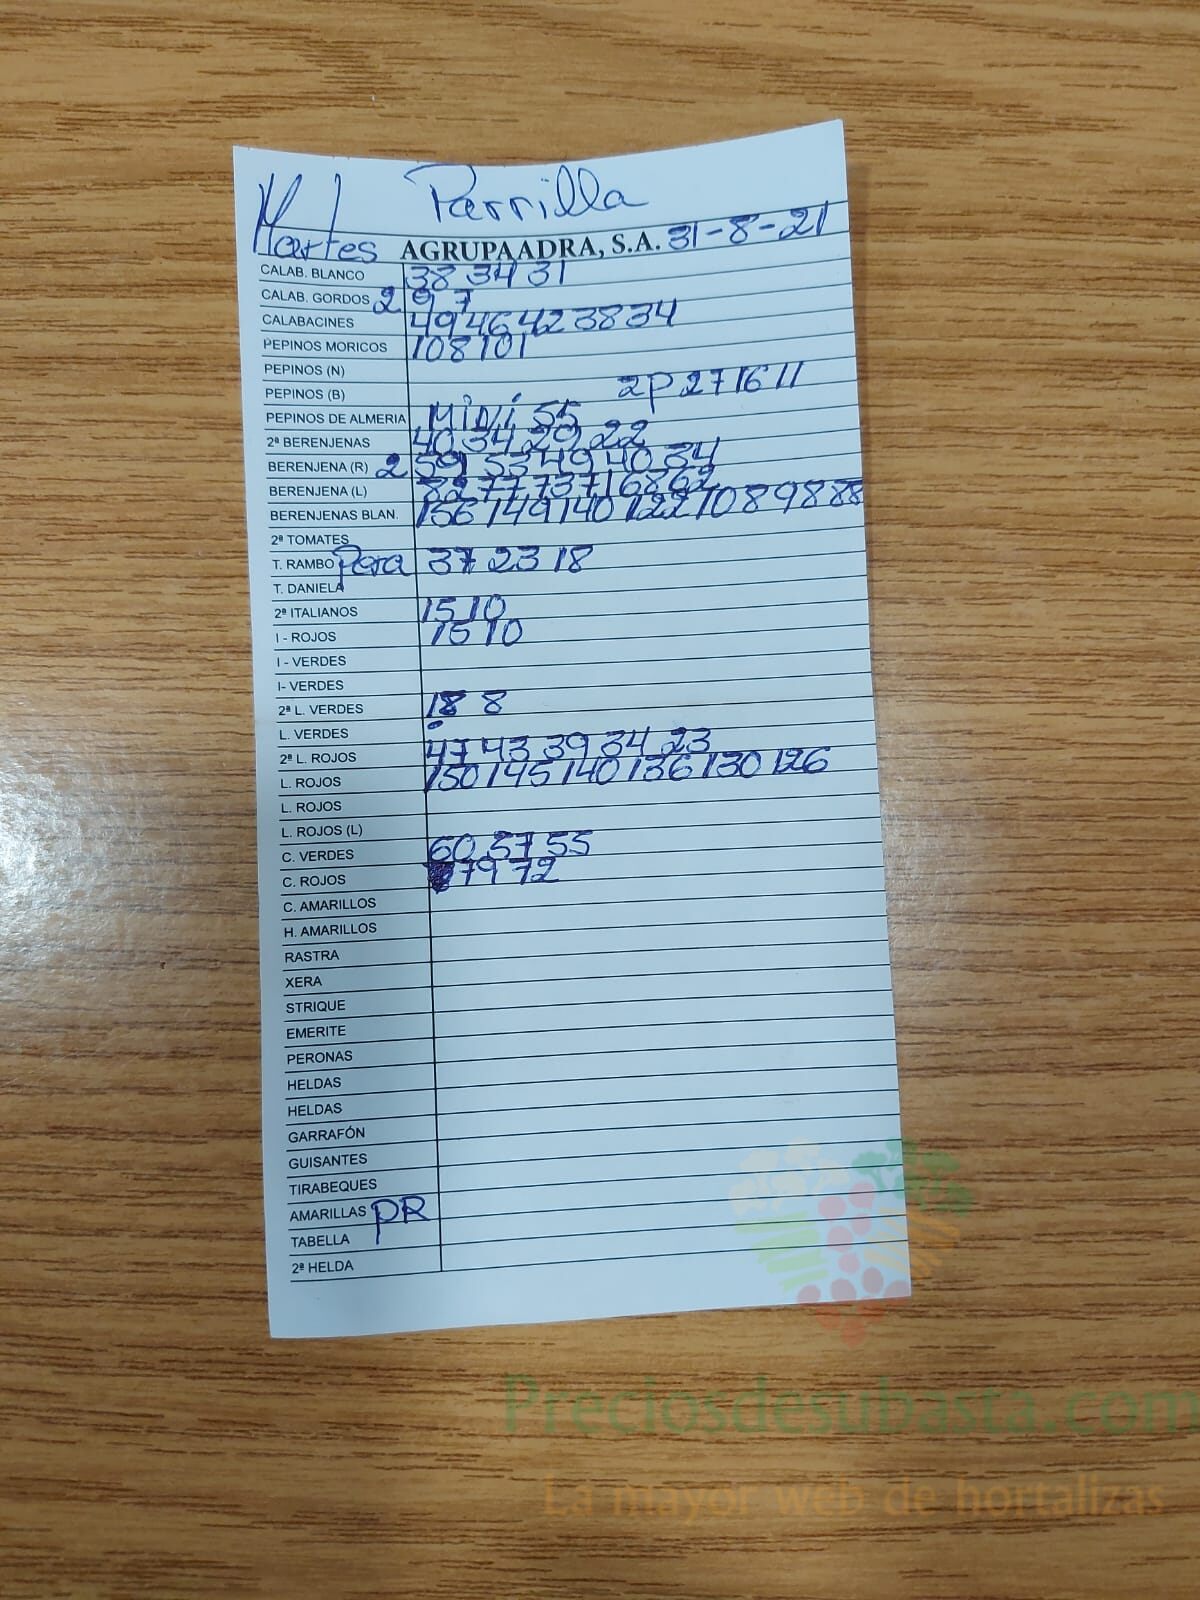 Parrilla
Martes AGRUPAADRA, S.A. 31-8-21
CALAB. BLANCO 38 34 31
CALAB. GORDOS 2 9 7
CALABACINES 49 46 42 38 34
PEPINOS MORICOS 108 101
PEPINOS (N)
PEPINOS (B) 2P 27 16 11
PEPINOS DE ALMERIA Mini 55
2ª BERENJENAS 40 34 29 22
BERENJENA (R) 2 59 55 49 40 34
BERENJENA (L) 82 77 73 71 68 62
BERENJENAS BLAN. 156 149 140 122 108 98 88
2ª TOMATES
T. RAMBO Pera 37 23 18
T. DANIELA
2ª ITALIANOS 15 10
I - ROJOS 15 10
I - VERDES
I- VERDES
2ª L. VERDES 18 8
L. VERDES
2ª L. ROJOS 47 43 39 34 23
L. ROJOS 150 145 140 136 130 126
L. ROJOS
L. ROJOS (L)
C. VERDES 60 57 55
C. ROJOS 79 72
C. AMARILLOS
H. AMARILLOS
RASTRA
XERA
STRIQUE
EMERITE
PERONAS
HELDAS
HELDAS
GARRAFÓN
GUISANTES
TIRABEQUES
AMARILLAS PR
TABELLA
2ª HELDA
Preciosdesubasta.com
La mayor web de hortalizas